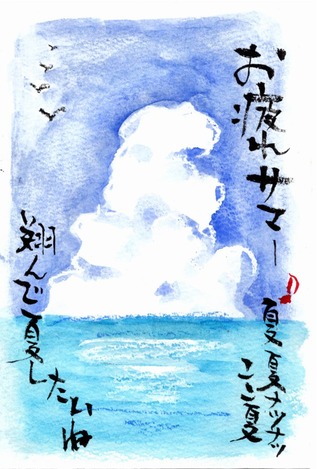 お疲れサマー
夏夏ナツナツ
ここ夏
翔んで夏したいね